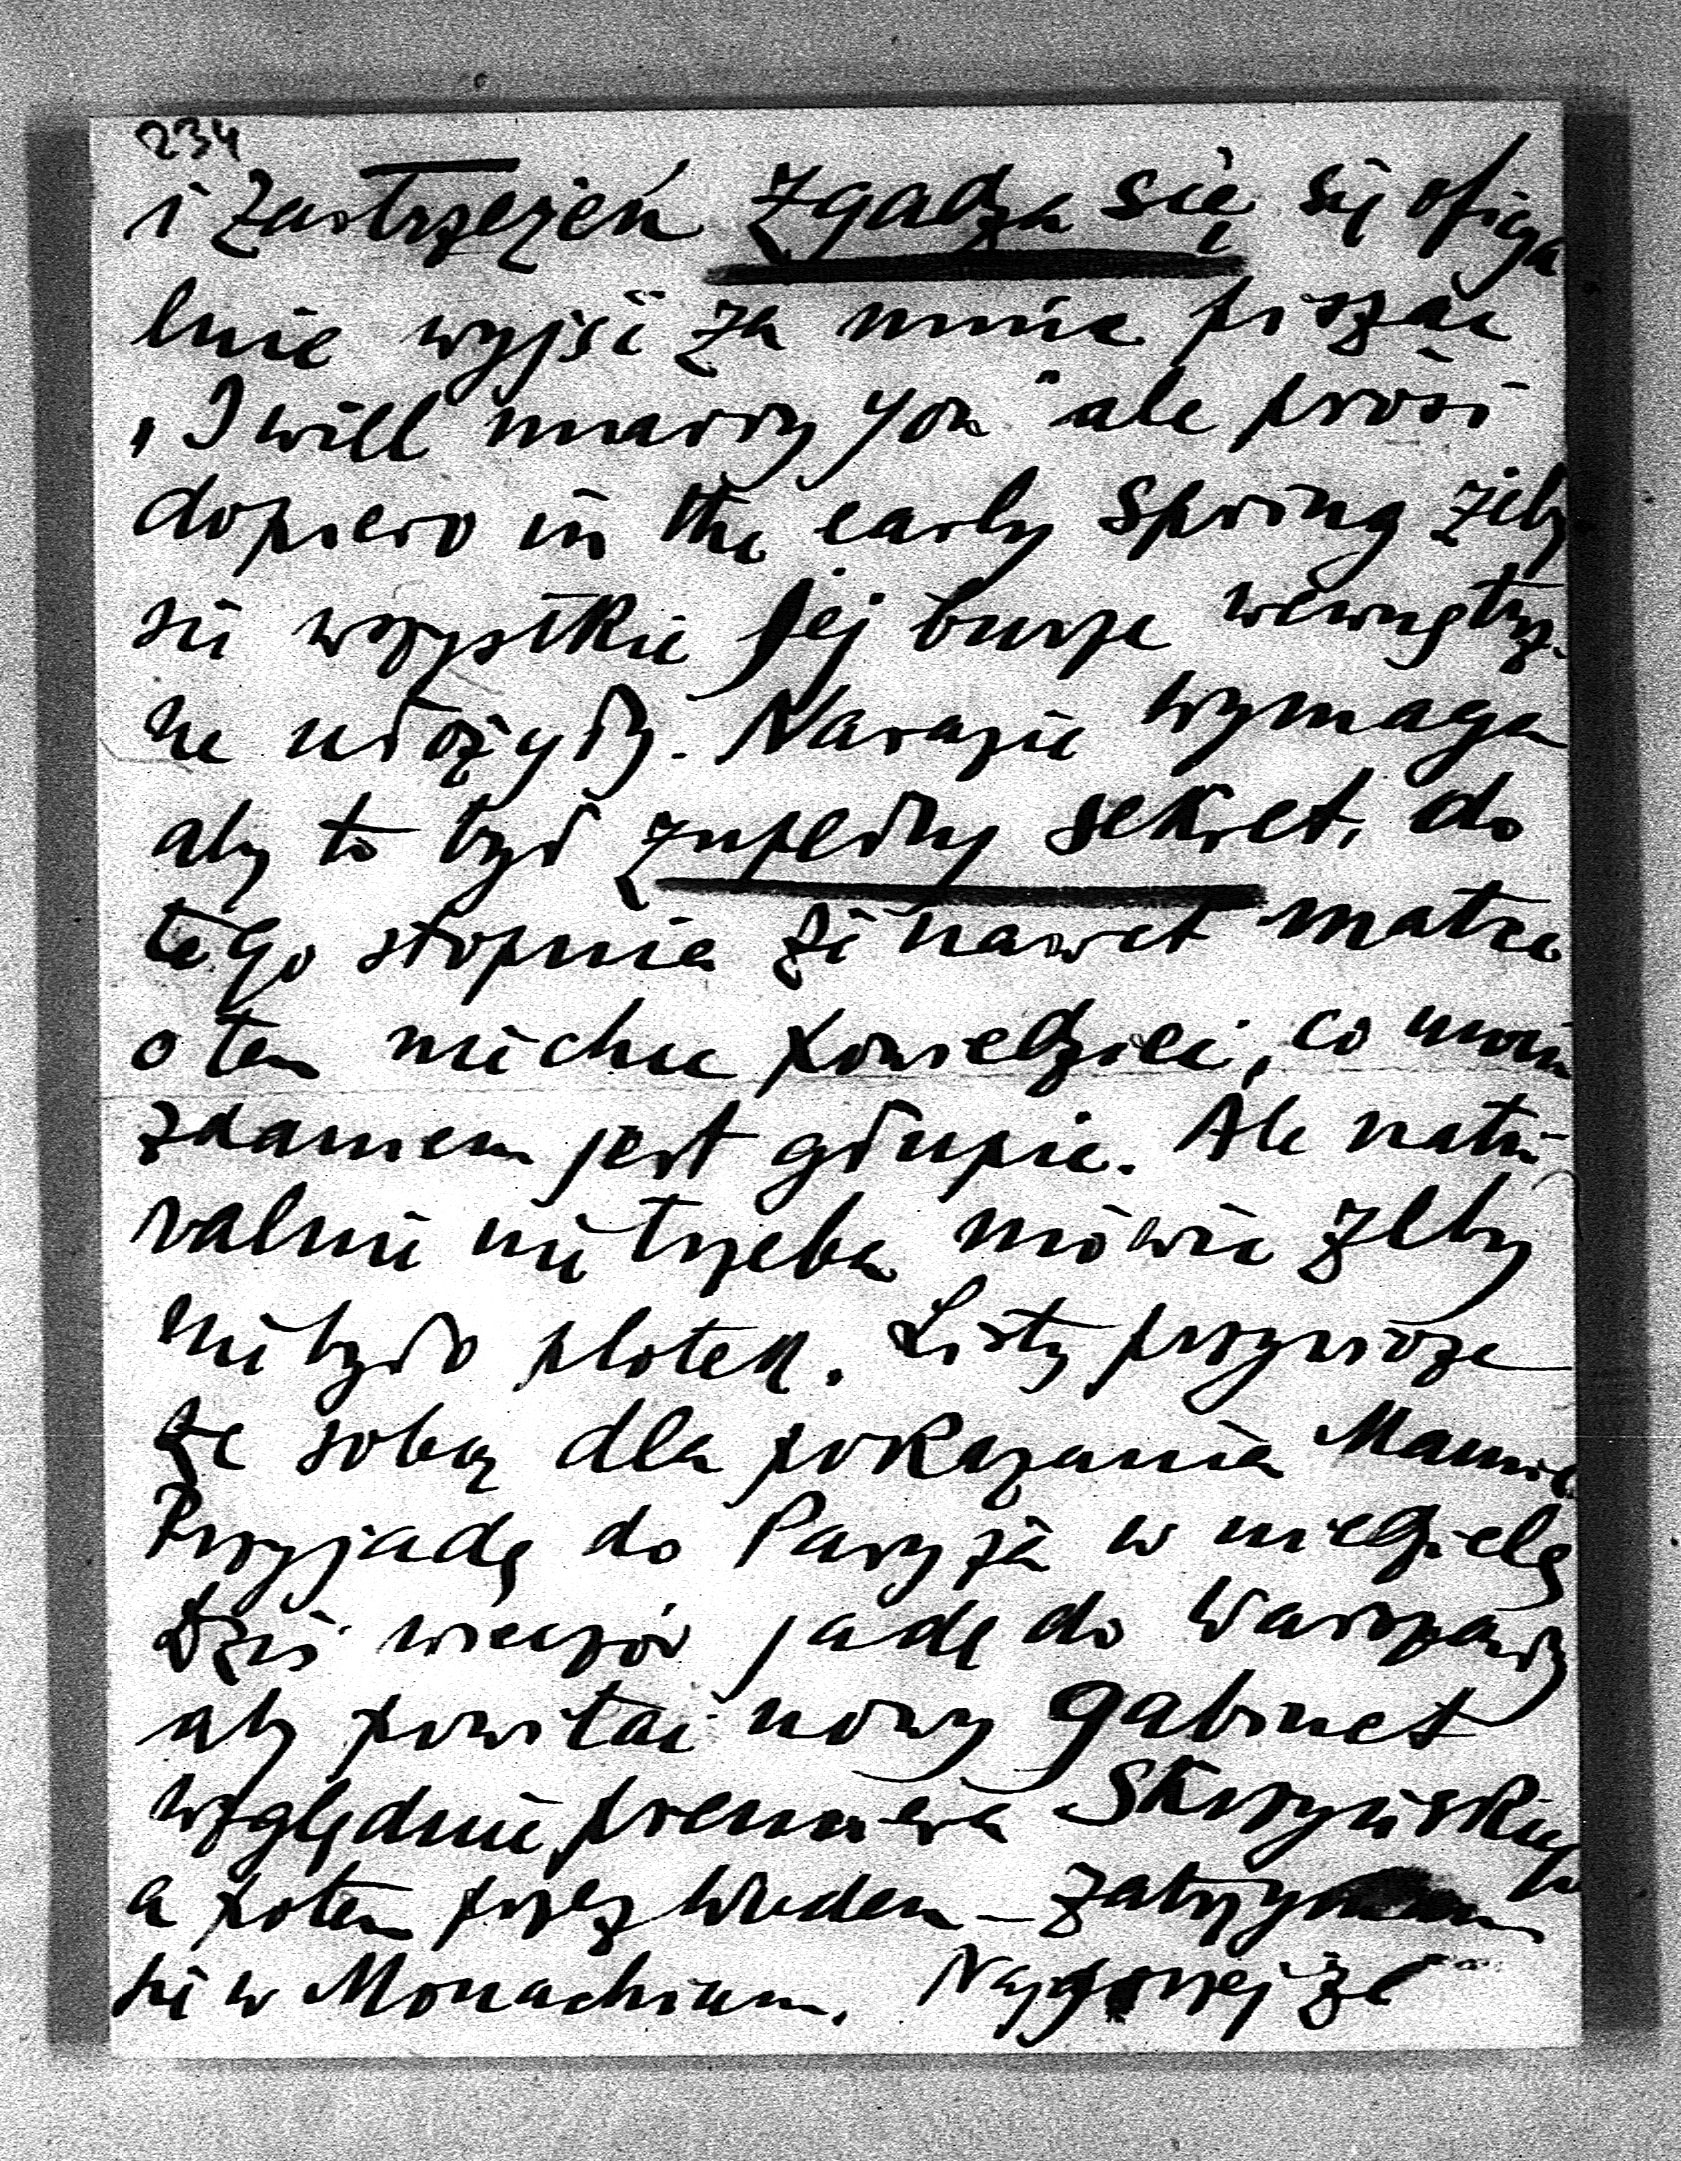 234
i zastrzeżeń zgadza się się oficya
lnie wyjść za mnie pisząc
„I will marry you" ale prosi
dopiero in the early Spring żeby
się wszystkie Jej burze wewnętrz-
ne ułożyły. Narazie wymaga
aby to był zupełny sekret, do
tego stopnia że nawet matce
o tem nie chce powiedzieć, co moim
zdaniem jest głupie. Ale natu-
ralnie nie trzeba mówić żeby
nie było plotek. Listy przywiozę
ze sobą dla pokazania Mamie.
Przyjadę do Paryża w niedzielę
Dziś wieczór jadę do Warszawy
aby powitać nowy gabinet
względnie premiera Skrzyńskiego
a potem przez Wiedeń – zatrzymam
się w Monachium. Najgorzej że